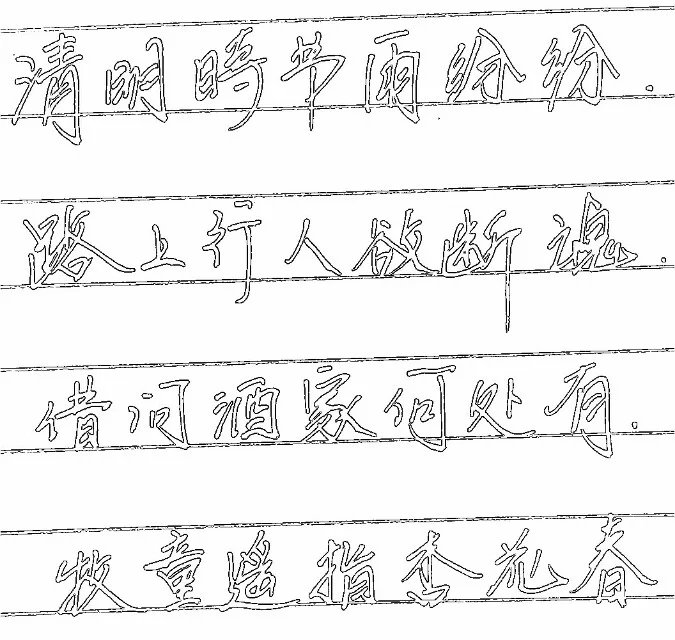 清明時节雨纷纷.
路上行人欲断魂.
借问酒家何处有.
牧童遥指杏花春